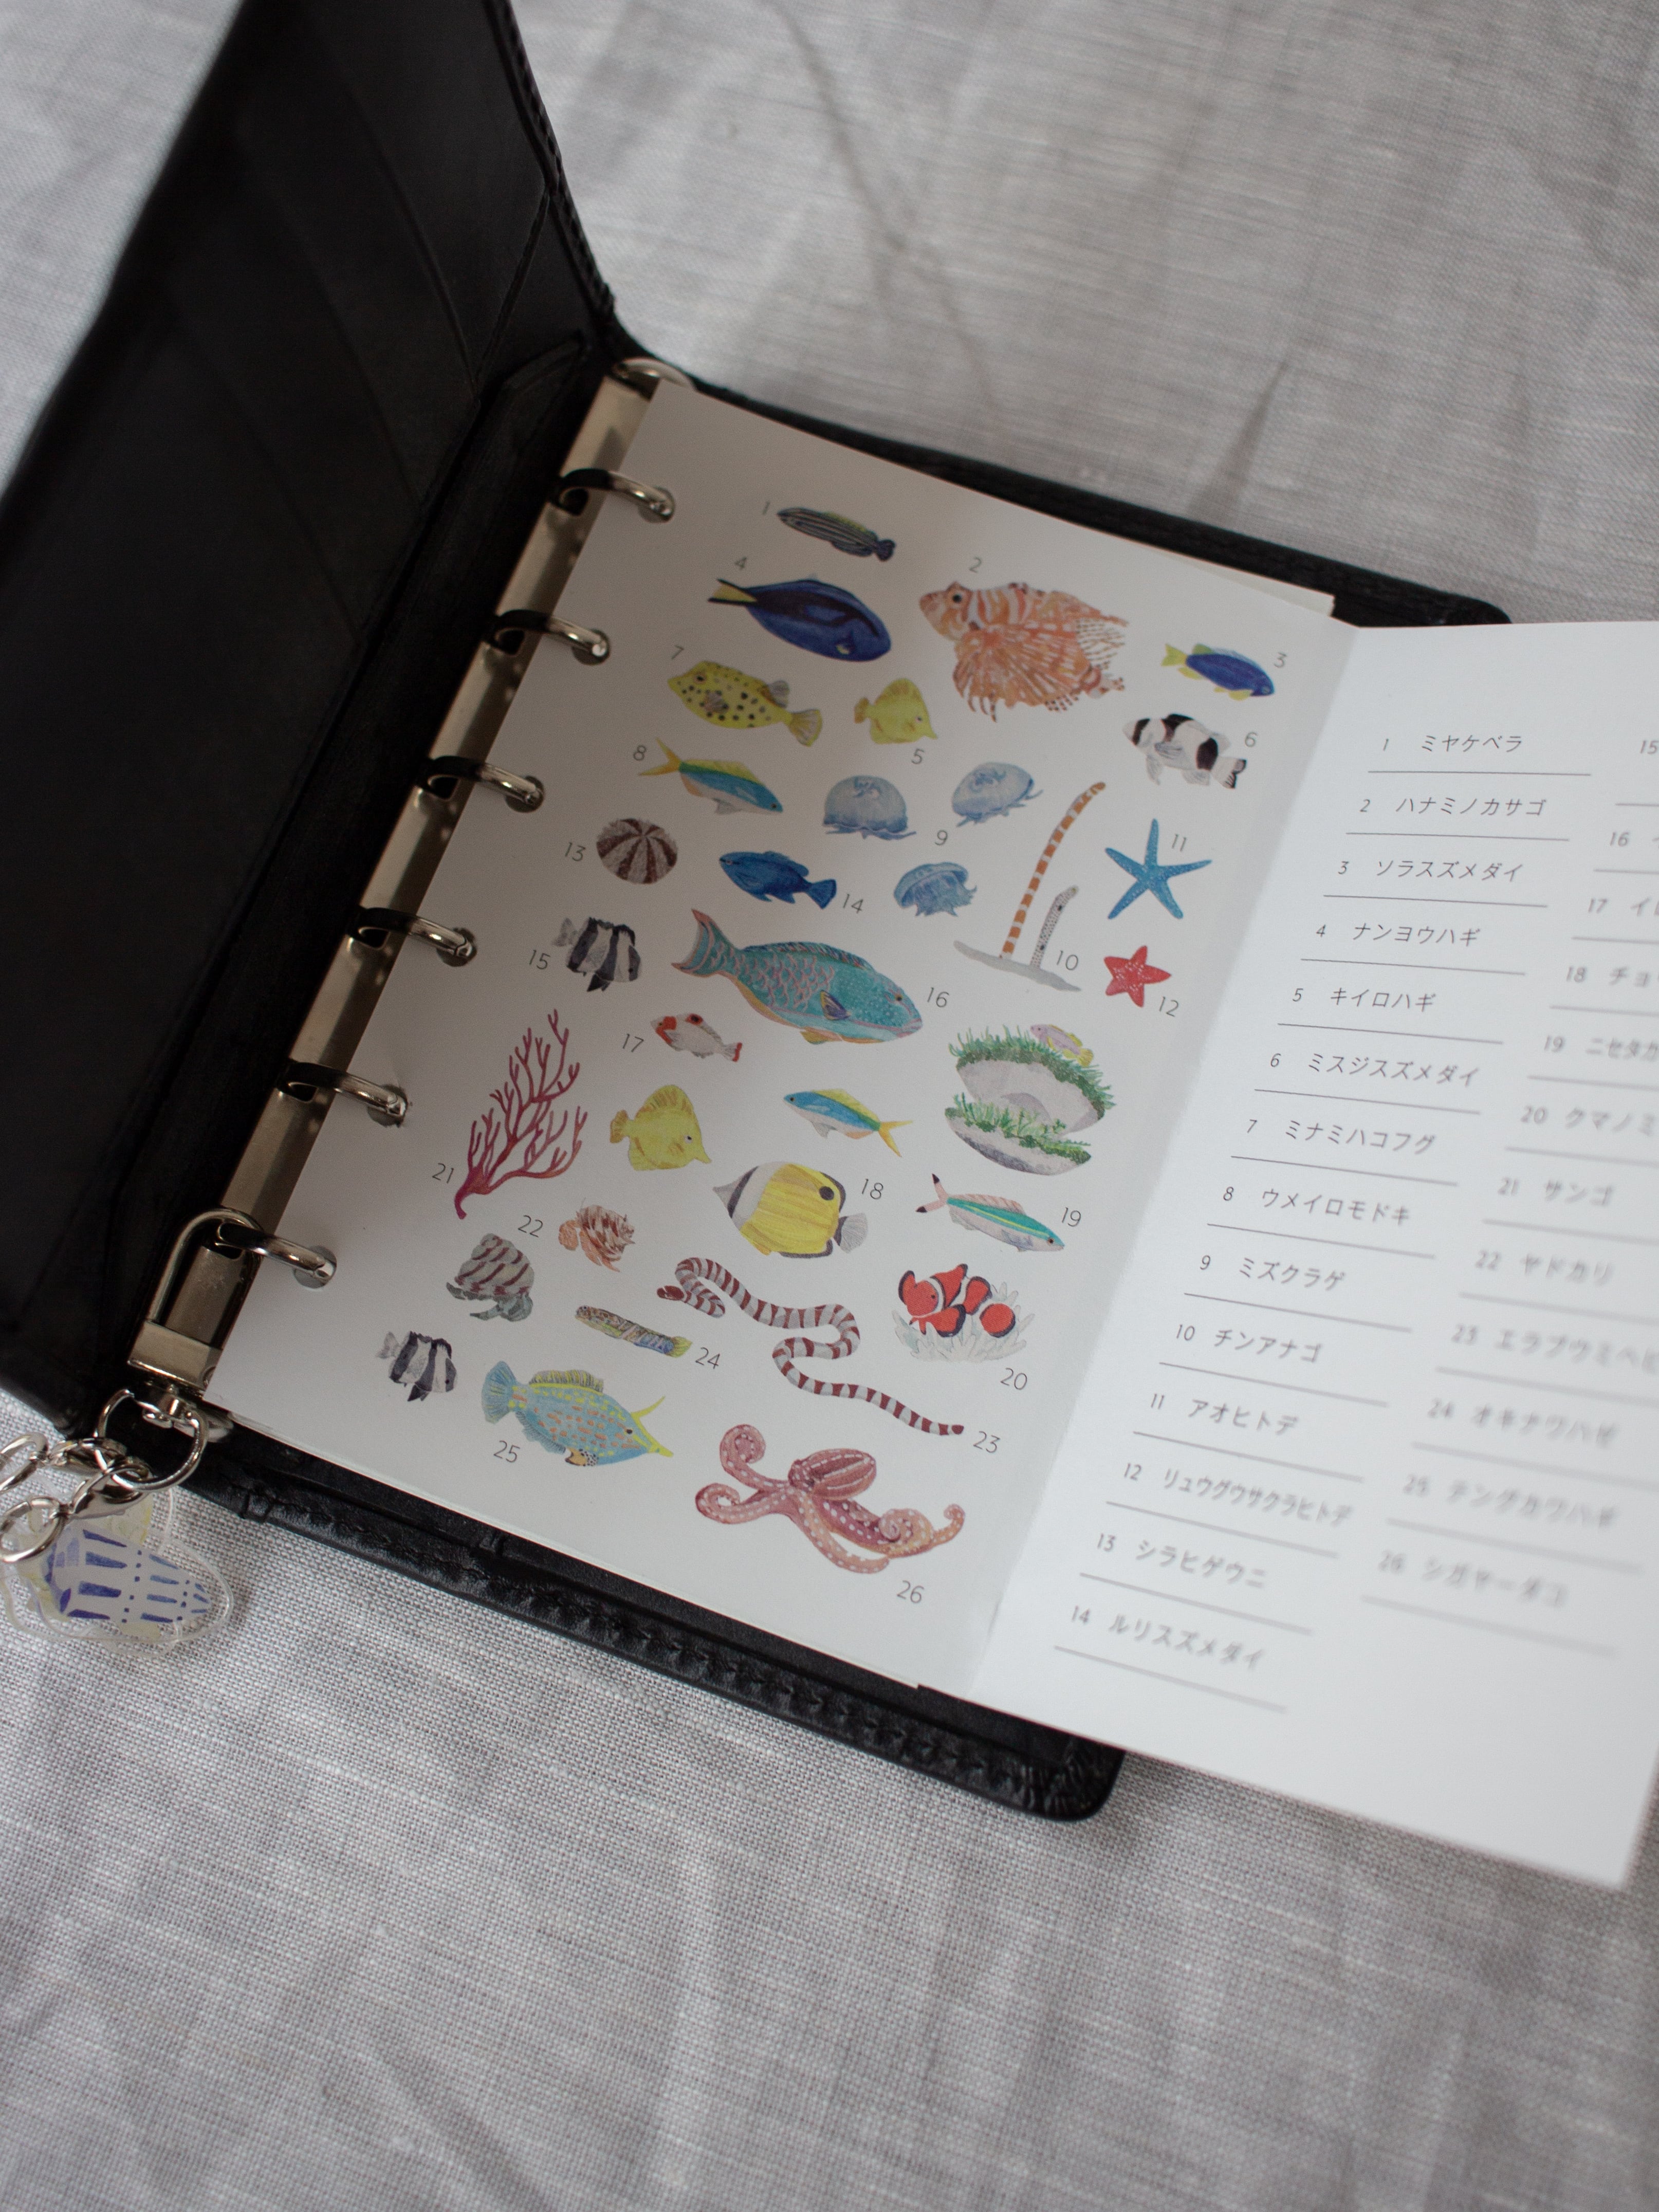 1
4
2
3
7
5
6
8
9
11
13
14
10
15
12
16
17
21
18
19
22
24
20
23
25
26
1 ミヤケベラ
2 ハナミノカサゴ
3 ソラスズメダイ
4 ナンヨウハギ
5 キイロハギ
6 ミスジスズメダイ
7 ミナミハコフグ
8 ウメイロモドキ
9 ミズクラゲ
10 チンアナゴ
11 アオヒトデ
12 リュウグウサクラヒトデ
13 シラヒゲウニ
14 ルリスズメダイ
15
16
17 イ
18 チョ
19 ニセタカ
20 クマノミ
21 サンゴ
22 ヤドカリ
23 エラブウミヘビ
24 オキナワハゼ
25 テングカワハギ
26 シガヤーダコ